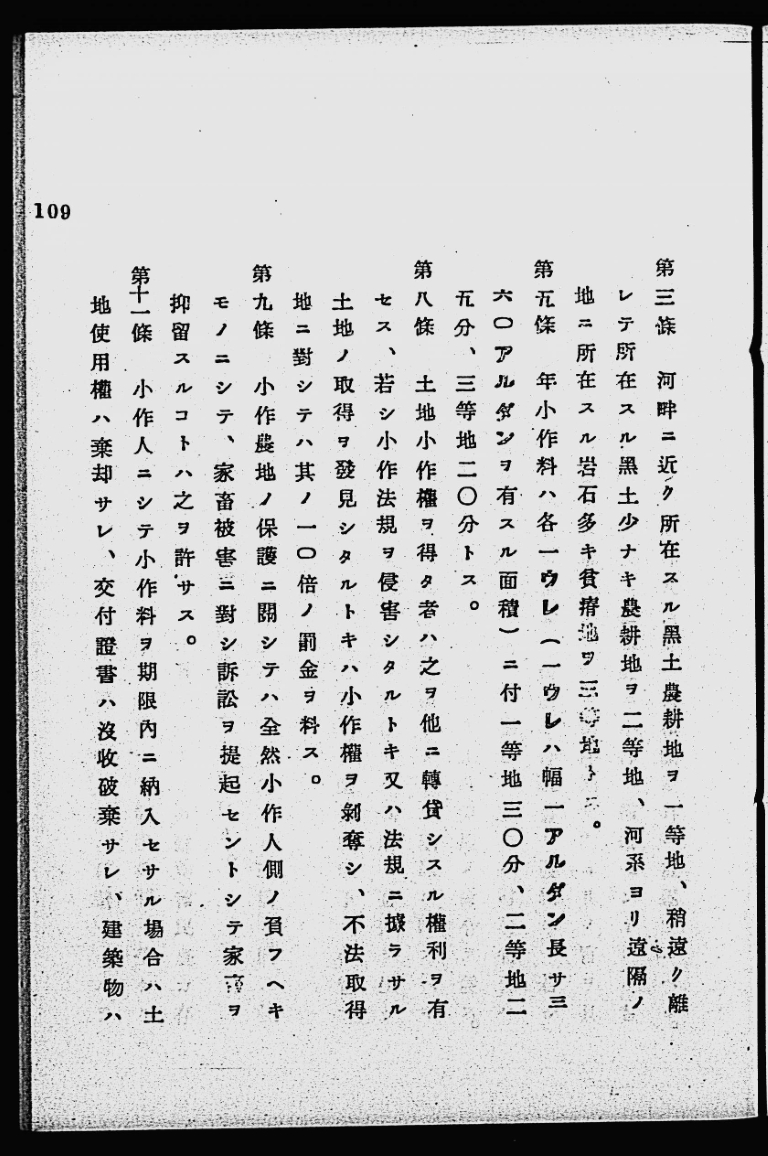 第三條　河畔ニ近ク所在スル黑土農耕地ヲ一等地、稍遠ク離
レテ所在スル黑土少ナキ農耕地ヲ二等地、河系ヨリ遠隔ノ
地ニ所在スル岩石多キ貧瘠地ヲ三等地トス。
第五條　年小作料ハ各一ウレ（一ウレハ幅一アルダン長サ三
六〇アルダンヲ有スル面積）ニ付一等地三〇分、二等地二
五分、三等地二〇分トス。
第八條　土地小作權ヲ得タ者ハ之ヲ他ニ轉貸シスル權利ヲ有
セス、若シ小作法規ヲ侵害シタルトキ又ハ法規ニ據ラサル
土地ノ取得ヲ發見シタルトキハ小作權ヲ剝奪シ、不法取得
地ニ對シテハ其ノ一〇倍ノ罰金ヲ料ス。
第九條　小作農地ノ保護ニ關シテハ全然小作人側ノ負フヘキ
モノニシテ、家畜被害ニ對シ訴訟ヲ提起セントシテ家畜ヲ
抑留スルコトハ之ヲ許サス。
第十一條　小作人ニシテ小作料ヲ期限內ニ納入セサル場合ハ土
地使用權ハ棄却サレ、交付證書ハ沒收破棄サレ、建築物ハ
109